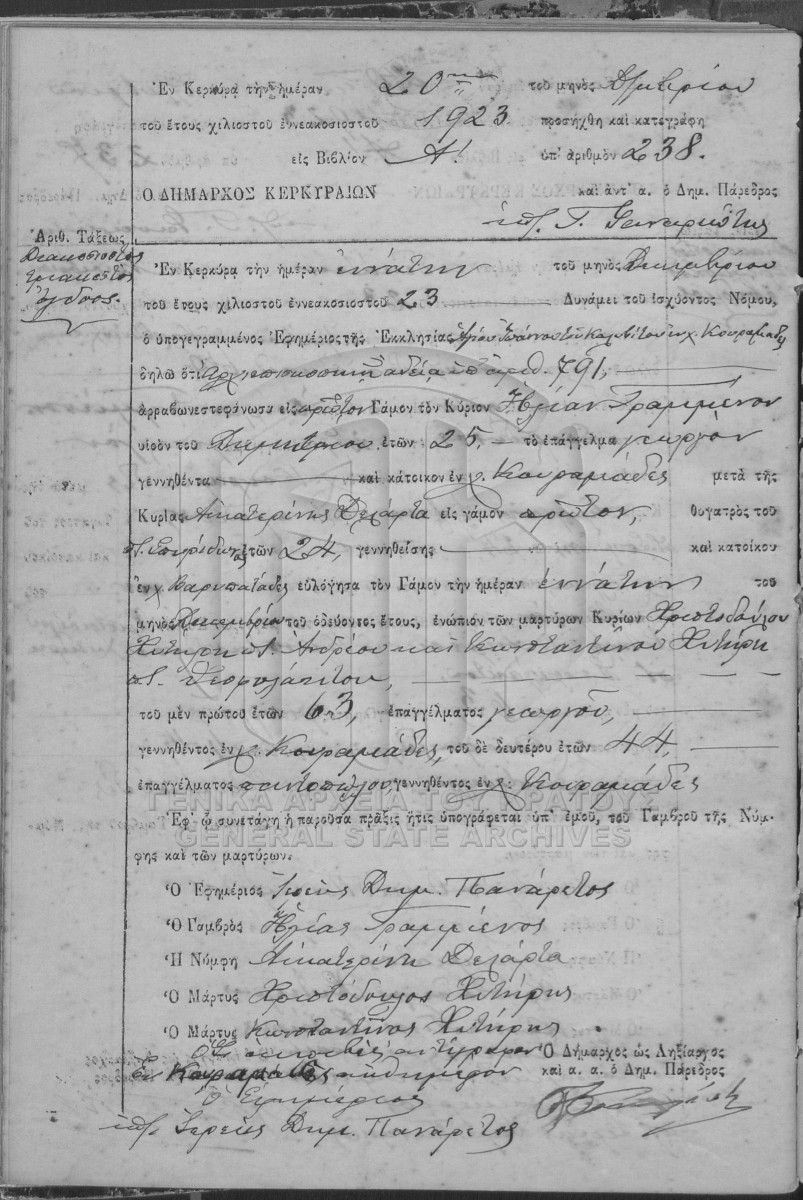 Ἐν Κερκύρᾳ τὴν ἡμέραν 20ην τοῦ μηνὸς Δ/μβρίου
τοῦ ἔτους χιλιοστοῦ ἐννεακοσιοστοῦ 1923 προσήχθη καὶ κατεγράφη
εἰς Βιβλίον Α! ὑπ' ἀριθμὸν 238.
Ο ΔΗΜΑΡΧΟΣ ΚΕΡΚΥΡΑΙΩΝ καὶ ἀντ' α. ὁ Δημ. Πάρεδρος
ὑπ. Γ.
Ἀριθ. Τάξεως
Διακοσιοστὸς
τριακοστὸς
ὄγδοος.
Ἐν Κερκύρᾳ τὴν ἡμέραν ἐννάτην τοῦ μηνὸς Δεκεμβρίου
τοῦ ἔτους χιλιοστοῦ ἐννεακοσιοστοῦ 23 Δυνάμει τοῦ ἰσχύοντος Νόμου,
ὁ ὑπογεγραμμένος Ἐφημέριος τῆς Ἐκκλησίας Ἁγίου Ἰωάννου τοῦ Καλυβίτου ἐν χ. Κουραμάδες
δηλῶ ὅτι Ἀρχιεπισκοπικῇ ἀδείᾳ ὑπ' ἀριθ. 791,
ἀρραβωνεστεφάνωσα εἰς πρῶτον Γάμον τὸν Κύριον Ἠλίαν Γραμμένον
υἱὸν τοῦ Δημητρίου ἐτῶν 25, τὸ ἐπάγγελμα γεωργὸν
γεννηθέντα καὶ κάτοικον ἐν χ. Κουραμάδες μετὰ τῆς
Κυρίας Αἰκατερίνης Δελάρτα εἰς γάμον πρῶτον, θυγατρὸς τοῦ
π. Σπυρίδωνος ἐτῶν 24, γεννηθείσης καὶ κατοίκου
ἐν χ. Βαρυπατάδες εὐλόγησα τὸν Γάμον τὴν ἡμέραν ἐννάτην τοῦ
μηνὸς Δεκεμβρίου τοῦ ὁδεύοντος ἔτους, ἐνώπιον τῶν μαρτύρων Κυρίων Χριστοδούλου
Χυτήρη π. Ἀνδρέου καὶ Κωνσταντίνου Χυτήρη
π. Θεοφυλάκτου,
τοῦ μὲν πρώτου ἐτῶν 63, ἐπαγγέλματος γεωργοῦ,
γεννηθέντος ἐν χ. Κουραμάδες, τοῦ δὲ δευτέρου ἐτῶν 44,
ἐπαγγέλματος παντοπώλου, γεννηθέντος ἐν χ. Κουραμάδες
ΓΕΝΙΚΑ ΑΡΧΕΙΑ ΤΟΥ ΚΡΑΤΟΥΣ
Ἐφ' ᾧ συνετάγη ἡ παροῦσα πρᾶξις ἥτις ὑπογράφεται ὑπ' ἐμοῦ, τοῦ Γαμβροῦ τῆς Νύμ-
GENERAL STATE ARCHIVES
φης καὶ τῶν μαρτύρων.
Ὁ Ἐφημέριος Ἱερεὺς Δημ. Πανάρετος
Ὁ Γαμβρὸς Ἠλίας Γραμμένος
Ἡ Νύμφη Αἰκατερίνη Δελάρτα
Ὁ Μάρτυς Χριστόδουλος Χυτήρης
Ὁ Μάρτυς Κωνσταντῖνος Χυτήρης
ἀκριβὲς ἀντίγραφον Ὁ Δήμαρχος ὡς Ληξίαρχος
ἐν Κουραμάδες αὐθημερὸν καὶ α. α. ὁ Δημ. Πάρεδρος
Ὁ Ἐφημέριος
ὑπ. Ἱερεὺς Δημ. Πανάρετος